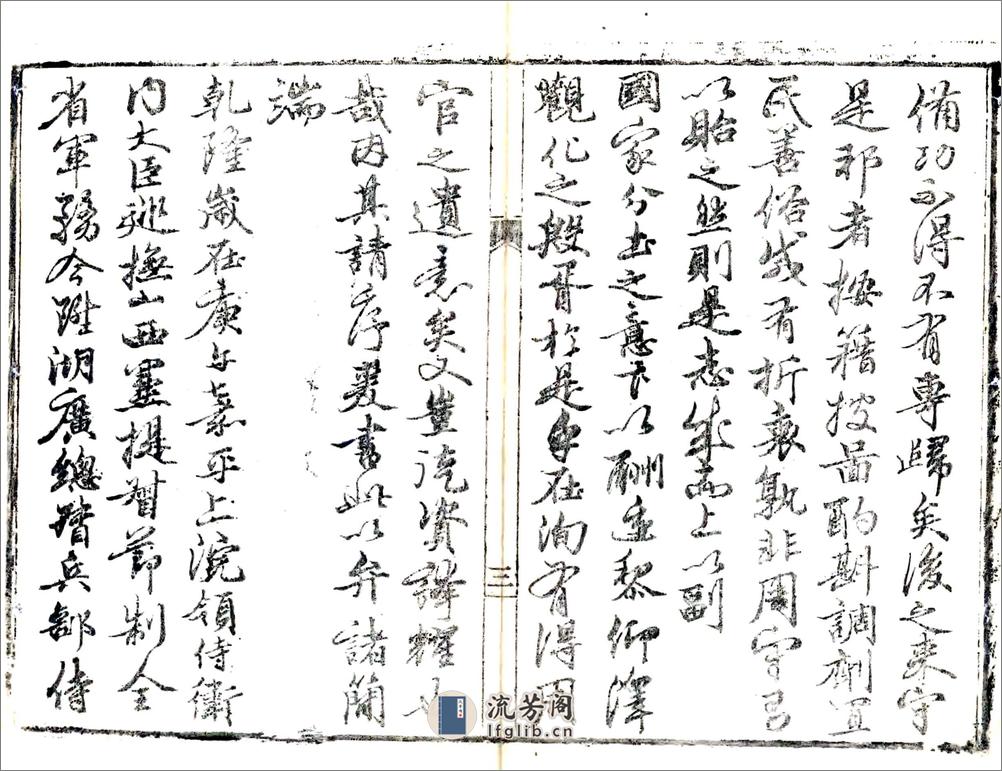 備功不得不有專歸矣後之來守
是邪者按籍披圖酌斟調劑宜
民善俗或有折衷孰非周守有
以貽之然則是志成而上以副
國家分土之意下以酬遺黎仰澤
觀化之殷胥於是乎在洵有得周
官之遺意矣又豈沾資譚耀
哉因其請序爰書此以弁諸簡
端
乾隆歲在庚午嘉平上浣領侍衛
內大臣廵撫山西兼提督節制全
省軍務今陞湖廣總督兵部侍
三
流芳阁
lfglib.cn